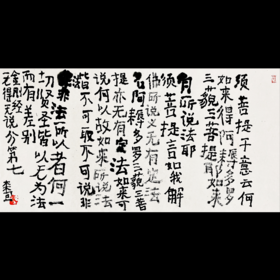 须菩提于意云何
如来得阿耨多罗
三藐三菩提耶如来
有所说法耶
须菩提言如我解
佛所说义无有定法
名阿耨多罗三藐三菩
提亦无有定法如来可
说何以故如来所说法
皆不可取不可说非
非法所以者何一
切贤圣皆以无为法
而有差别
金刚经
无得无说分第七